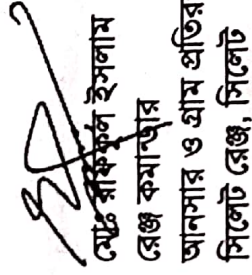 মোঃ রফিকুল ইসলাম
রেঞ্জ কমান্ডার
আনসার ও গ্রাম প্রতির
সিলেট রেঞ্জ, সিলেট